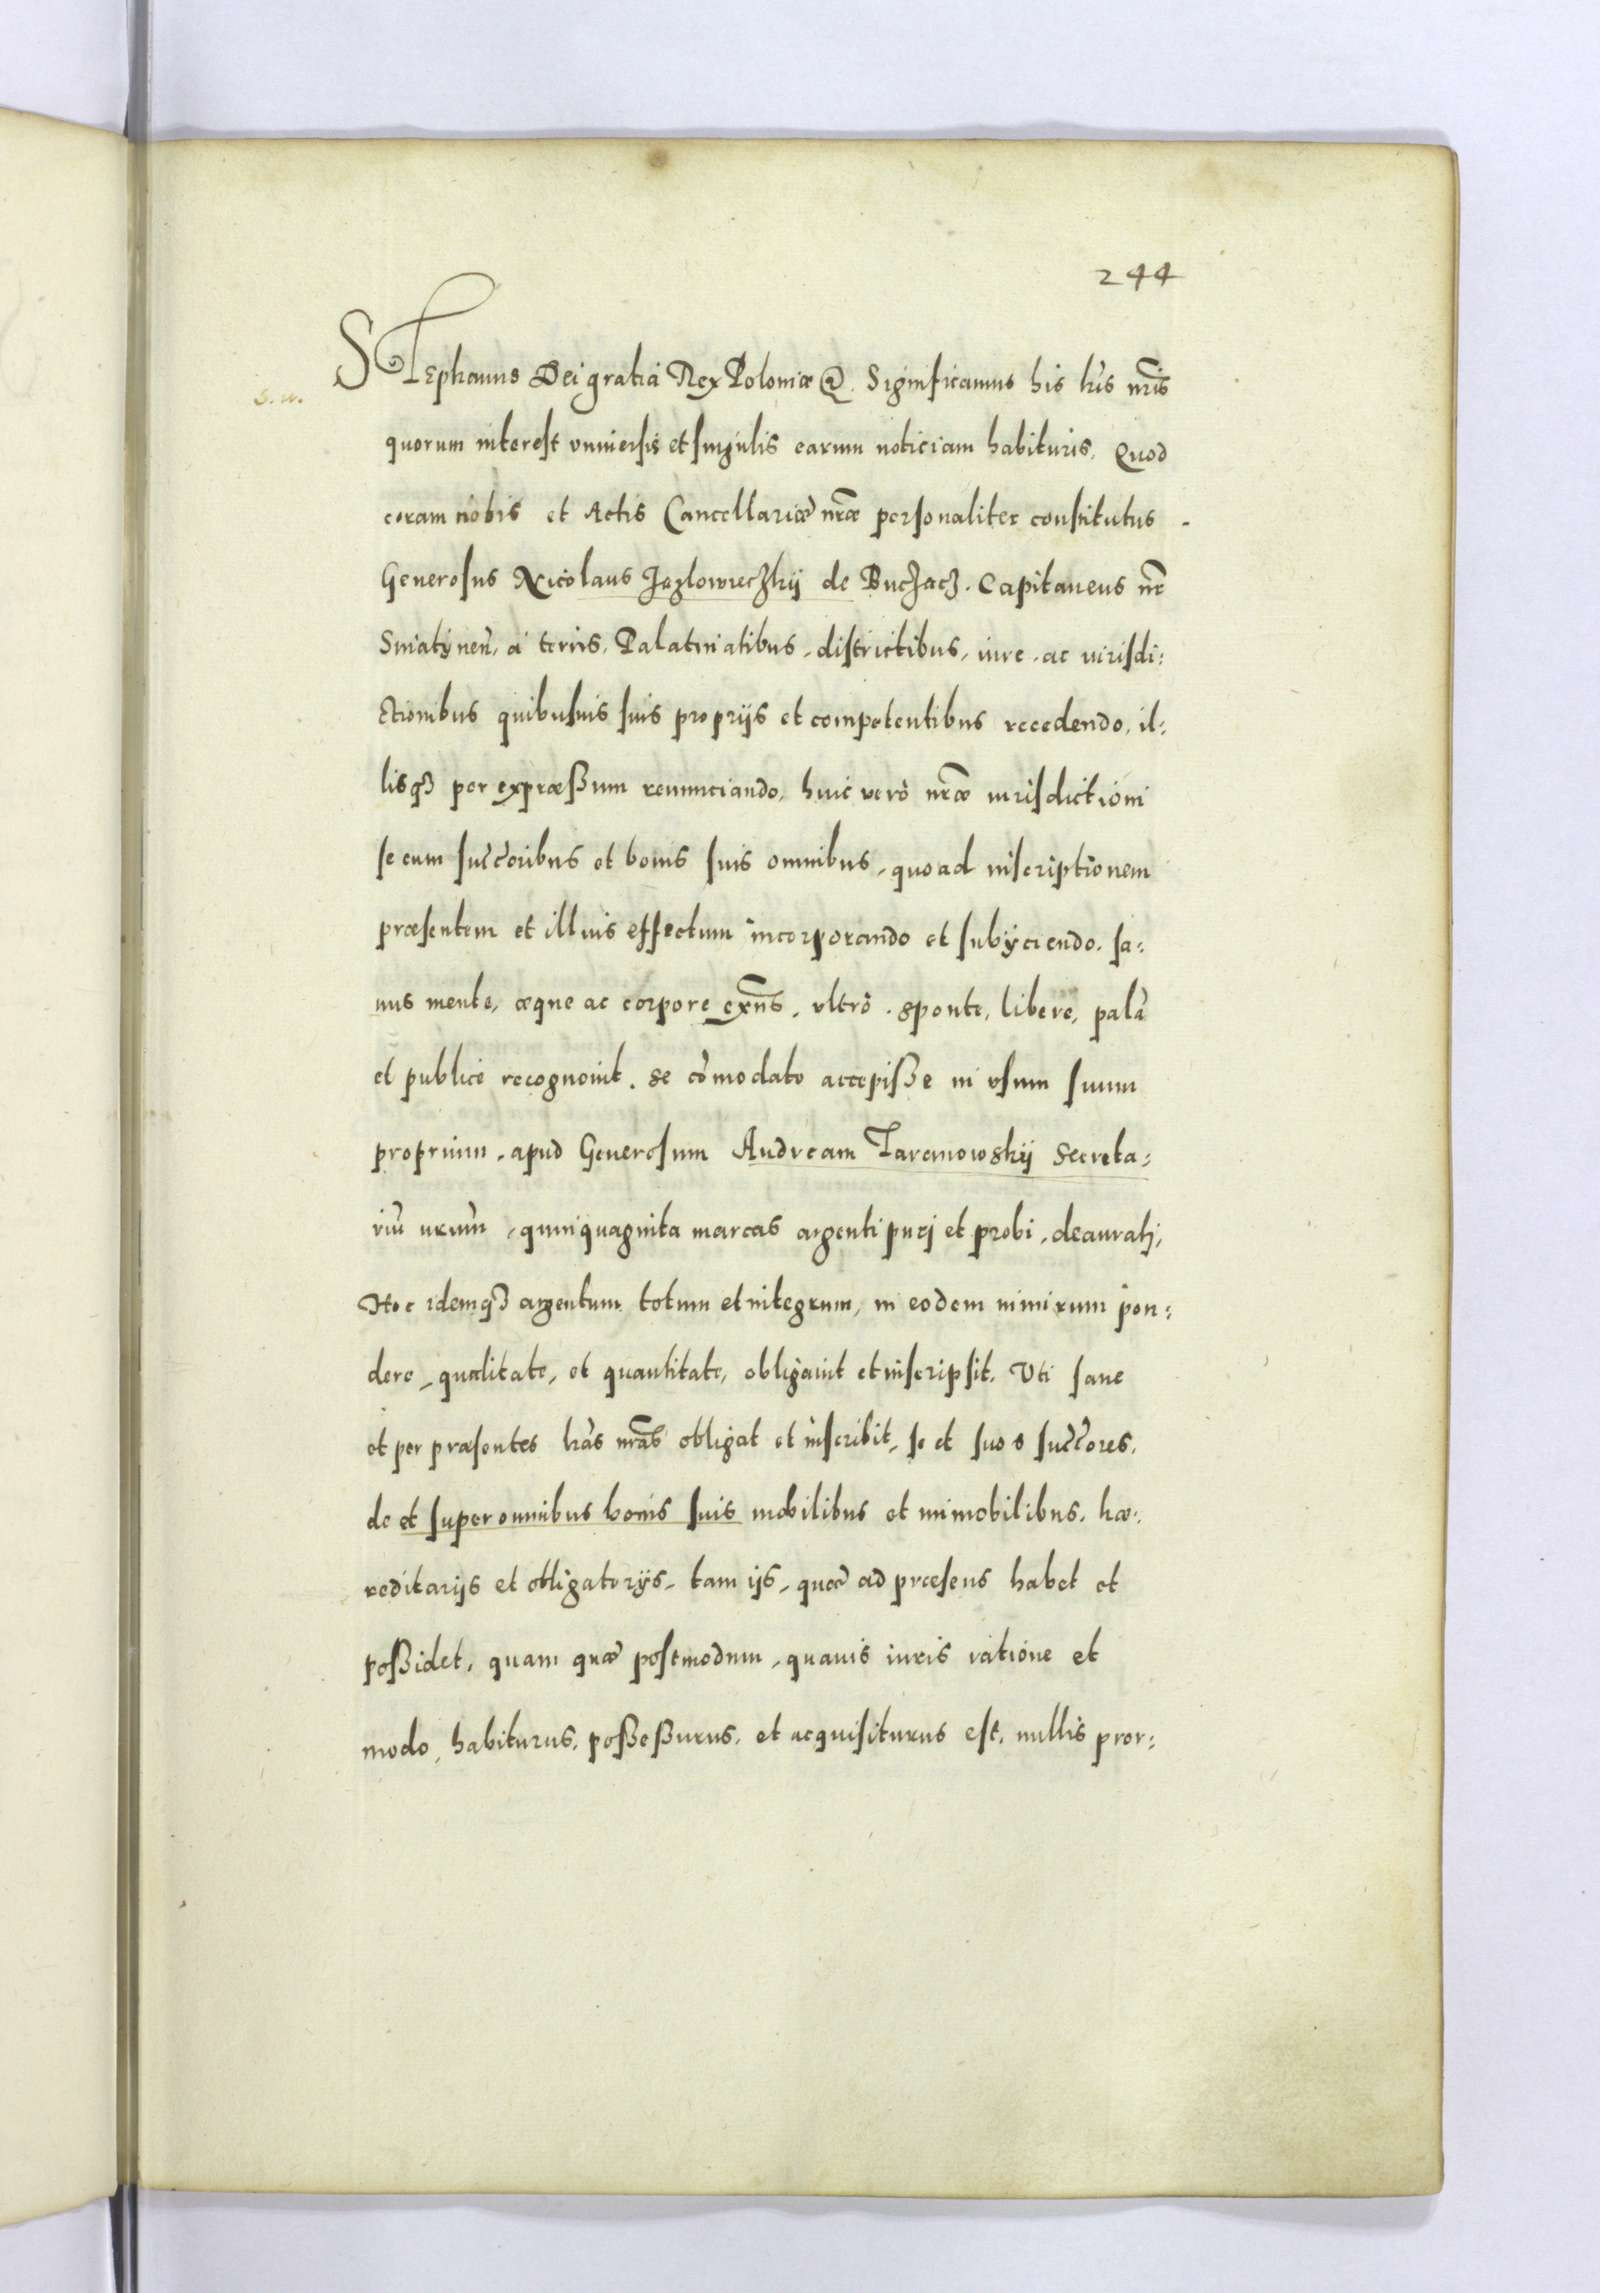 244
Stephanus Dei gratia Rex Poloniæ &. Significamus his lr̃is nr̃is
quorum interest vniuersis et singulis earum noticiam habituris. Quod
coram nobis et Actis Cancellariæ nr̃æ personaliter constitutus
Generosus Nicolaus Jazlowieczkij de Buczacz. Capitaneus nr̃
Sniatÿnen̄. à terris, Palatinatibus, districtibus, iure, ac iurisdi:
ctionibus quibusuis suis proprijs et competentibus recedendo, il:
lisq3 per expræßum renunciando, huic verò nr̃æ iurisdictioni
se cum succ̃oribus et bonis suis omnibus, quoad inscriptionem
præsentem et illius effectum incorporando et subÿciendo. sa:
nus mente, æque ac corpore exñs, vltrò, sponte, libere, palā
et publicè recognouit. Se cōmodato accepiße in vsum suum
proprium, apud Generosum Andream Taranowskij Secreta:
riū nr̃um, quinquaginta marcas argenti purj et probi, deauratj,
Hoc idemq3 argentum totum et integrum, in eodem nimirum pon:
dere, qualitate, et quantitate, obligauit et inscripsit. Vti sane
et per præsentes lr̃as nr̃as obligat et inscribit, se et suos succ̃ores,
de et super omnibus bonis suis mobilibus et immobilibus, hæ:
reditarijs et obligatorijs, tam ijs, quæ ad præsens habet et
poßidet, quam quæ postmodum, quauis iuris ratione et
modo, habiturus, poßeßurus, et acquisiturus est, nullis pror: